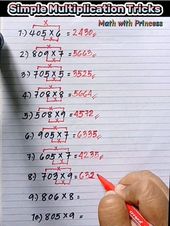 Simple Multiplication Tricks
Math with Princess
1.) 405 x 6 = 2430
2.) 809 x 7 = 5663
3.) 705 x 5 = 3525
4.) 708 x 8 = 5664
5.) 508 x 9 = 4572
6.) 905 x 7 = 6335
7.) 605 x 7 = 4235
8.) 703 x 9 = 632
9.) 806 x 8 =
10.) 805 x 9 =